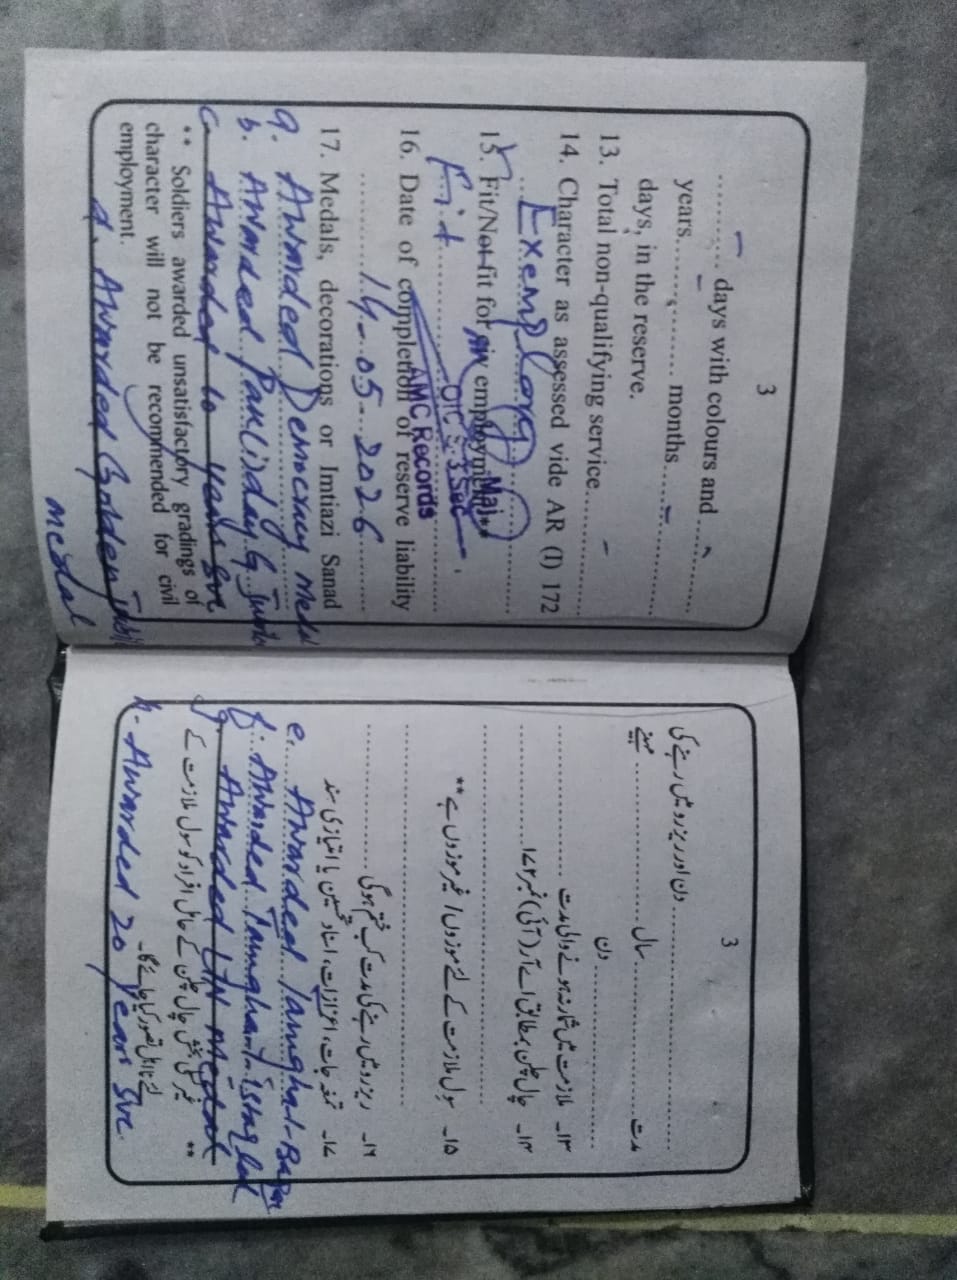 3
........ days with colours and ........
years........ months........
days, in the reserve.
13. Total non-qualifying service........ –
14. Character as assessed vide AR (I) 172
Exemplary
15. Fit/Not fit for employment**
Fit
Maj
OIC
AMC Records
16. Date of completion of reserve liability
14-05-2026
17. Medals, decorations or Imtiazi Sanad
a. Awarded Democracy Medal
b. Awarded
c. Awarded 10 years Svc
** Soldiers awarded unsatisfactory gradings of
character will not be recommended for civil
employment.
d. Awarded Golden
medal
3
مدت ........ سال ........ مہینے
........ دن اور ریزرو میں رہنے کی
........ دن
۱۳۔ ملازمت میں شمار نہ ہونے والی مدت ........
۱۴۔ چال چلن بمطابق اے آر (آئی) نمبر ۱۷۲ ........
۱۵۔ سول ملازمت کے لئے موزوں / غیر موزوں ہے **
۱۶۔ ریزرو میں رہنے کی مدت کب ختم ہوگی ........
۱۷۔ تمغہ جات، اعزازات، اسناد تحسین یا امتیازی سند
e. Awarded Tamgha-I-Baqa
f. Awarded Tamgha-I-Istaqlal
g. Awarded UN Medal
** غیر تسلی بخش چال چلن کے حامل افراد کو سول ملازمت کے
لئے نااہل تصور کیا جائے گا۔
h. Awarded 20 years Svc